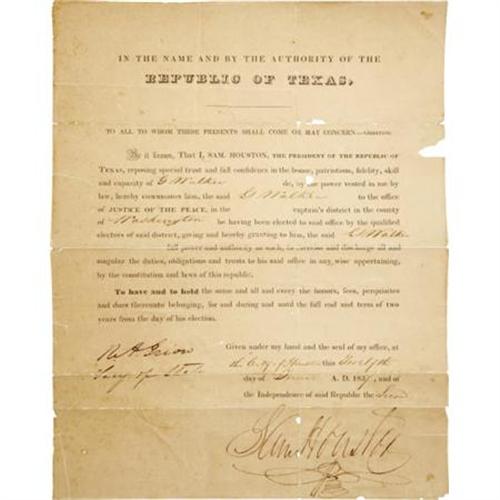 IN THE NAME AND BY THE AUTHORITY OF THE
REPUBLIC OF TEXAS,
TO ALL TO WHOM THESE PRESENTS SHALL COME OR MAY CONCERN—GREETING:
Be it known, That I, SAM. HOUSTON, THE PRESIDENT OF THE REPUBLIC OF
TEXAS, reposing special trust and full confidence in the honor, patriotism, fidelity, skill
and capacity of G Walker do, by the power vested in me by
law, hereby commission him, the said G Walker to the office
of JUSTICE OF THE PEACE, in the captain's district in the county
of Washington he having been elected to said office by the qualified
electors of said district, giving and hereby granting to him, the said G Walker
full power and authority as such, to execute and discharge all and
singular the duties, obligations and trusts to his said office in any wise appertaining,
by the constitution and laws of this republic.
To have and to hold the same and all and every the honors, fees, perquisites
and dues thereunto belonging, for and during and until the full end and term of two
years from the day of his election.
Given under my hand and the seal of my office, at
R A Irion the City of Houston this Twelfth
Secy of State day of A. D. 183 and of
the Independence of said Republic the
Sam Houston